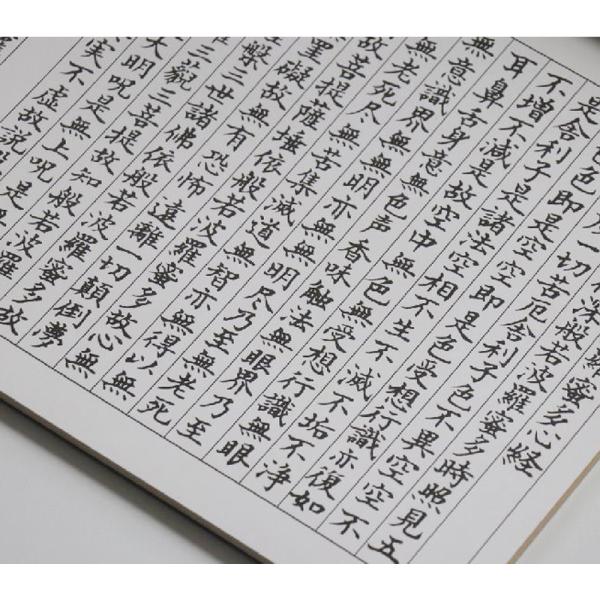 蜜多心経
深般若波羅蜜多時照見五
一切苦厄舎利子色不異空空不
色即是空空即是色受想行識亦復如
是舎利子是諸法空相不生不滅不垢不浄
不増不減是故空中無色無受想行識無眼
耳鼻舌身意無色声香味触法無眼界乃至
無意識界無無明亦無無明尽乃至無老死
無老死尽無苦集滅道無智亦無得以無
故菩提薩埵依般若波羅蜜多故心無
罣礙故無有恐怖遠離一切顛倒夢
槃三世諸佛依般若波羅蜜多故
三藐三菩提故知般若波羅
大明呪是無上呪是
実不虚故説